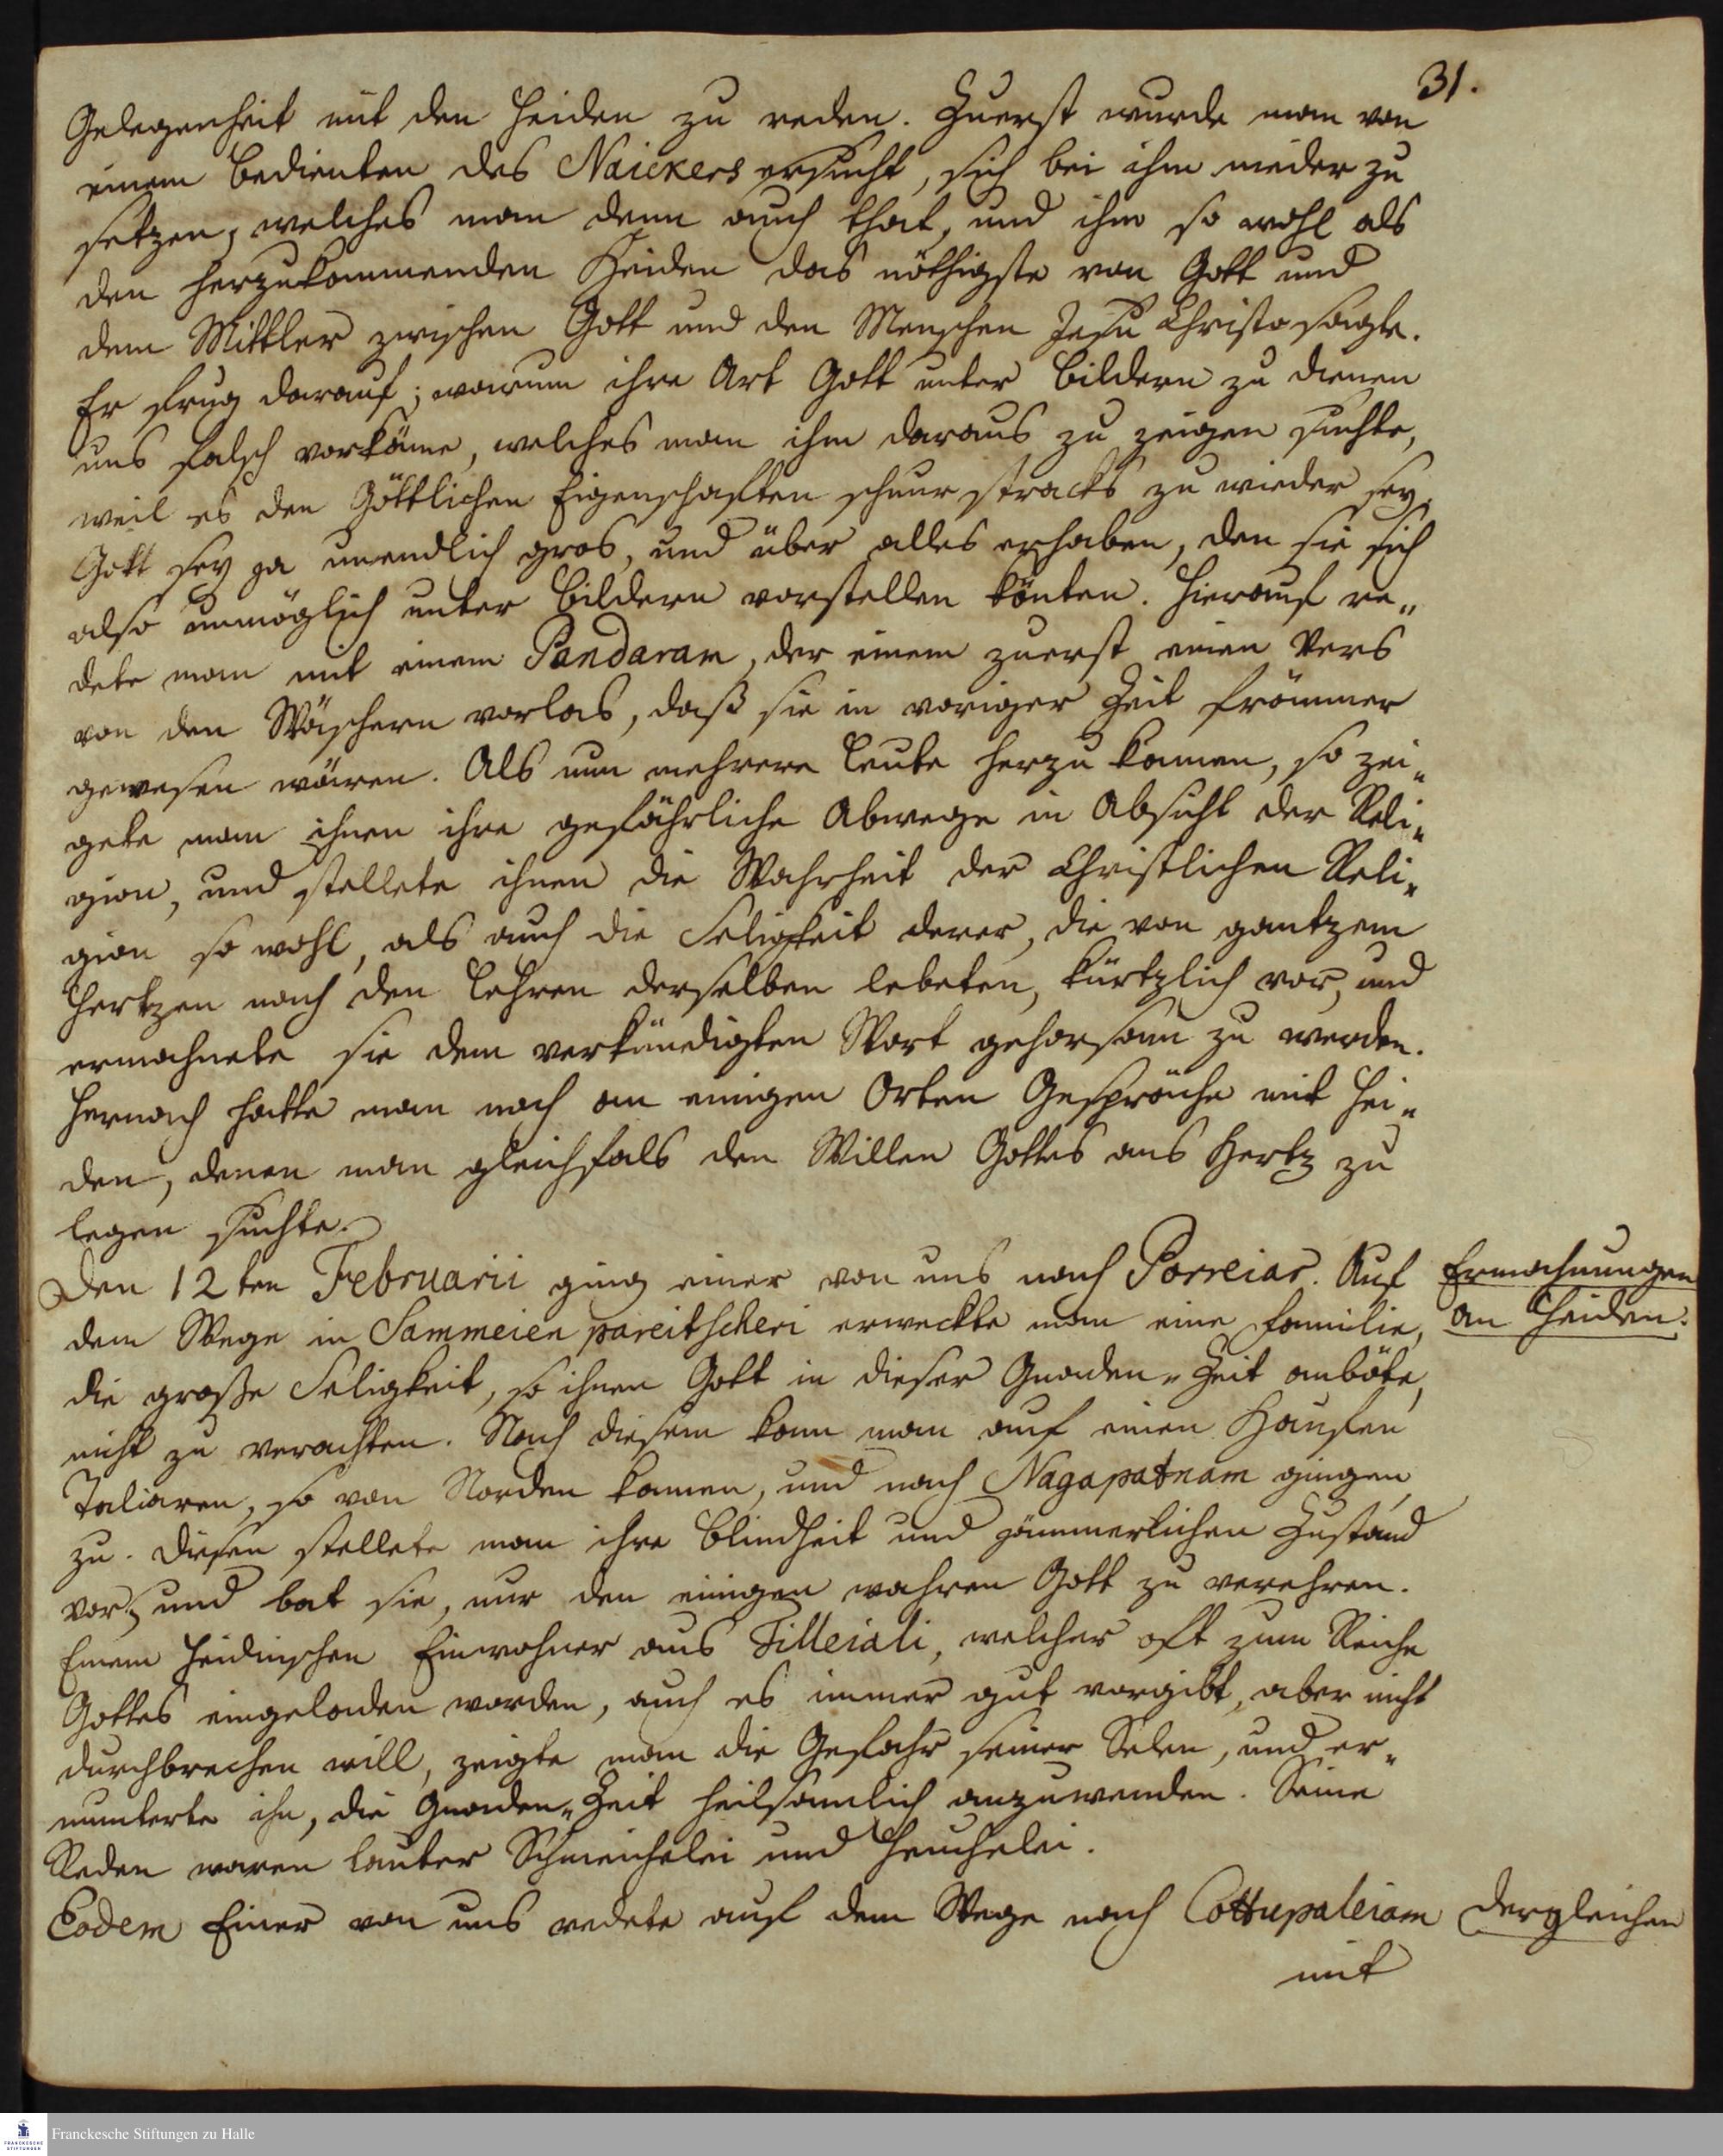 31.
Gelegenheit mit den Heiden zu reden. Zuerst wurde man von
einem Bedienten des Naickers ersucht, sich bei ihm nieder zu
setzen, welches man denn auch that, und ihm so wohl als
den herzukommenden Heiden das nöthigste von Gott und
dem Mittler zwischen Gott und den Menschen Jesu Christo sagte.
Er frug darauf; warum ihre Art Gott unter Bildern zu dienen
uns falsch vorkäme, welches man ihm daraus zu zeigen suchte,
weil es den Göttlichen Eigenschaften schnur stracks zu wieder sey.
Gott sey ja unendlich gros, und über alles erhaben, den sie sich
also unmöglich unter Bildern vorstellen könten. Hierauf re„
dete man mit einem Pandaram, der einem zuerst einen Vers
von den Wäschern vorlas, daß sie in voriger Zeit frömmer
gewesen wären. Als nun mehrere Leute herzu kamen, so zei„
gete man ihnen ihre gefährliche Abwege in Absicht der Reli„
gion, und stellete ihnen die Wahrheit der Christlichen Reli„
gion so wohl, als auch die Seligkeit derer, die von gantzem
Hertzen nach den Lehren derselben lebeten, kürtzlich vor, und
ermahnete sie dem verkündigten Wort gehorsam zu werden.
Hernach hatte man noch an einigen Orten Gespräche mit Hei„
den, denen man gleichfals den Willen Gottes ans Hertz zu
legen suchte.
Den 12ten Februarii ging einer von uns nach Porreiar. Auf
Ermahnungen
an Heiden.
dem Wege in Sammeien pareitscheri erweckte man eine Familie,
die große Seligkeit, so ihnen Gott in dieser Gnaden„Zeit anböte,
nicht zu verachten. Nach diesem kam man auf einen Haufen
Taliaren, so von Norden kamen, und nach Nagapatnam gingen,
zu. Diesen stellete man ihre Blindheit und jämmerlichen Zustand
vor, und bat sie, nur den einigen wahren Gott zu verehren.
Einem Heidnischen Einwohner aus Tilleiali, welcher oft zum Reiche
Gottes eingeladen worden, auch es immer gut vorgibt, aber nicht
durchbrechen will, zeigte man die Gefahr seiner Selen, und er„
munterte ihn, die Gnaden„Zeit heilsamlich anzuwenden. Seine
Reden waren lauter Schmeichelei und Heuchelei.
Eodem Einer von uns redete auf dem Wege nach Cottupaleiam
dergleichen
mit
Franckesche Stiftungen zu Halle